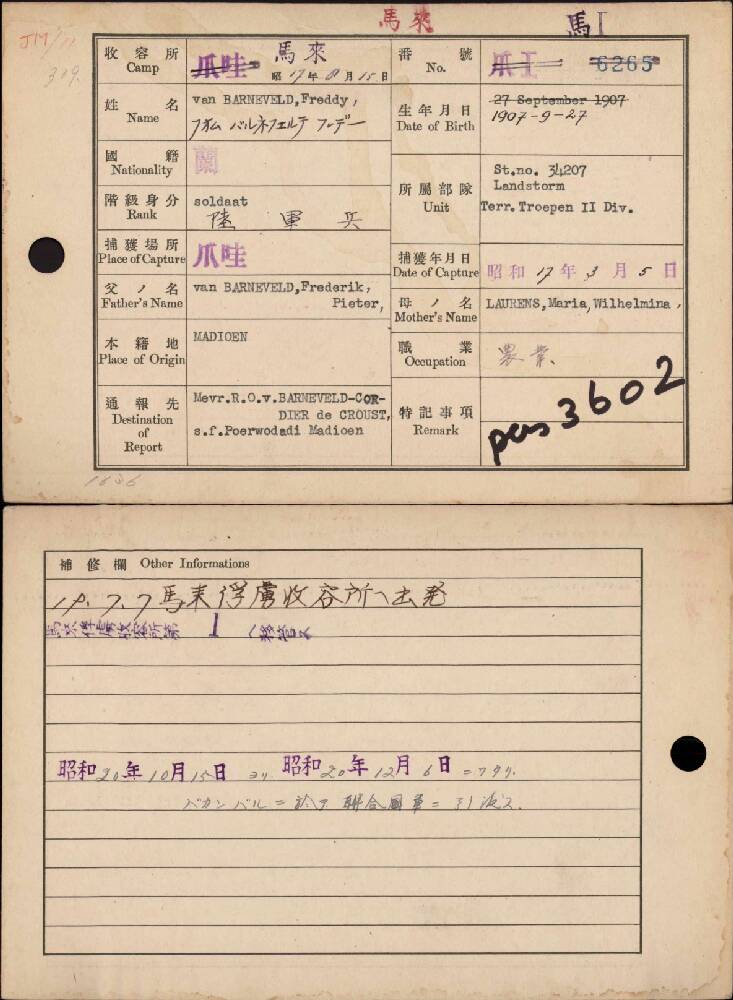 馬來
馬I
JM/11
309.
收容所 Camp 爪哇 馬來
昭17年8月15日
番號 No. 爪I 6265
姓名 Name van BARNEVELD,Freddy,
生年月日 Date of Birth 27 September 1907
1907-9-27
國籍 Nationality 蘭
階級身分 Rank soldaat
陸軍兵
所屬部隊 Unit St.no. 34207
Landstorm
Terr.Troepen II Div.
捕獲場所 Place of Capture 爪哇
捕獲年月日 Date of Capture 昭和17年3月5日
父ノ名 Father's Name van BARNEVELD,Frederik,
Pieter,
母ノ名 Mother's Name LAURENS,Maria,Wilhelmina,
本籍地 Place of Origin MADIOEN
職業 Occupation 農業、
通報先 Destination of Report Mevr.R.O.v.BARNEVELD-COR-
DIER de CROUST,
s.f.Poerwodadi Madioen
特記事項 Remark pas 3602
1636
補修欄 Other Informations
馬来俘虜收容所ヘ出発
馬來俘虜收容所第1ヘ移管ス
昭和20年10月15日ヨリ昭和20年12月6日ニワタリ
パカンバルニ於テ聯合國軍ニ引渡ス